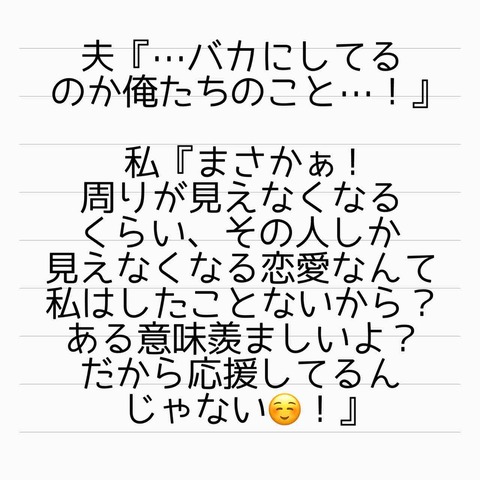 夫『…バカにしてる
のか俺たちのこと…！』
私『まさかぁ！
周りが見えなくなる
くらい、その人しか
見えなくなる恋愛なんて
私はしたことないから？
ある意味羨ましいよ？
だから応援してるん
じゃない☺️！』